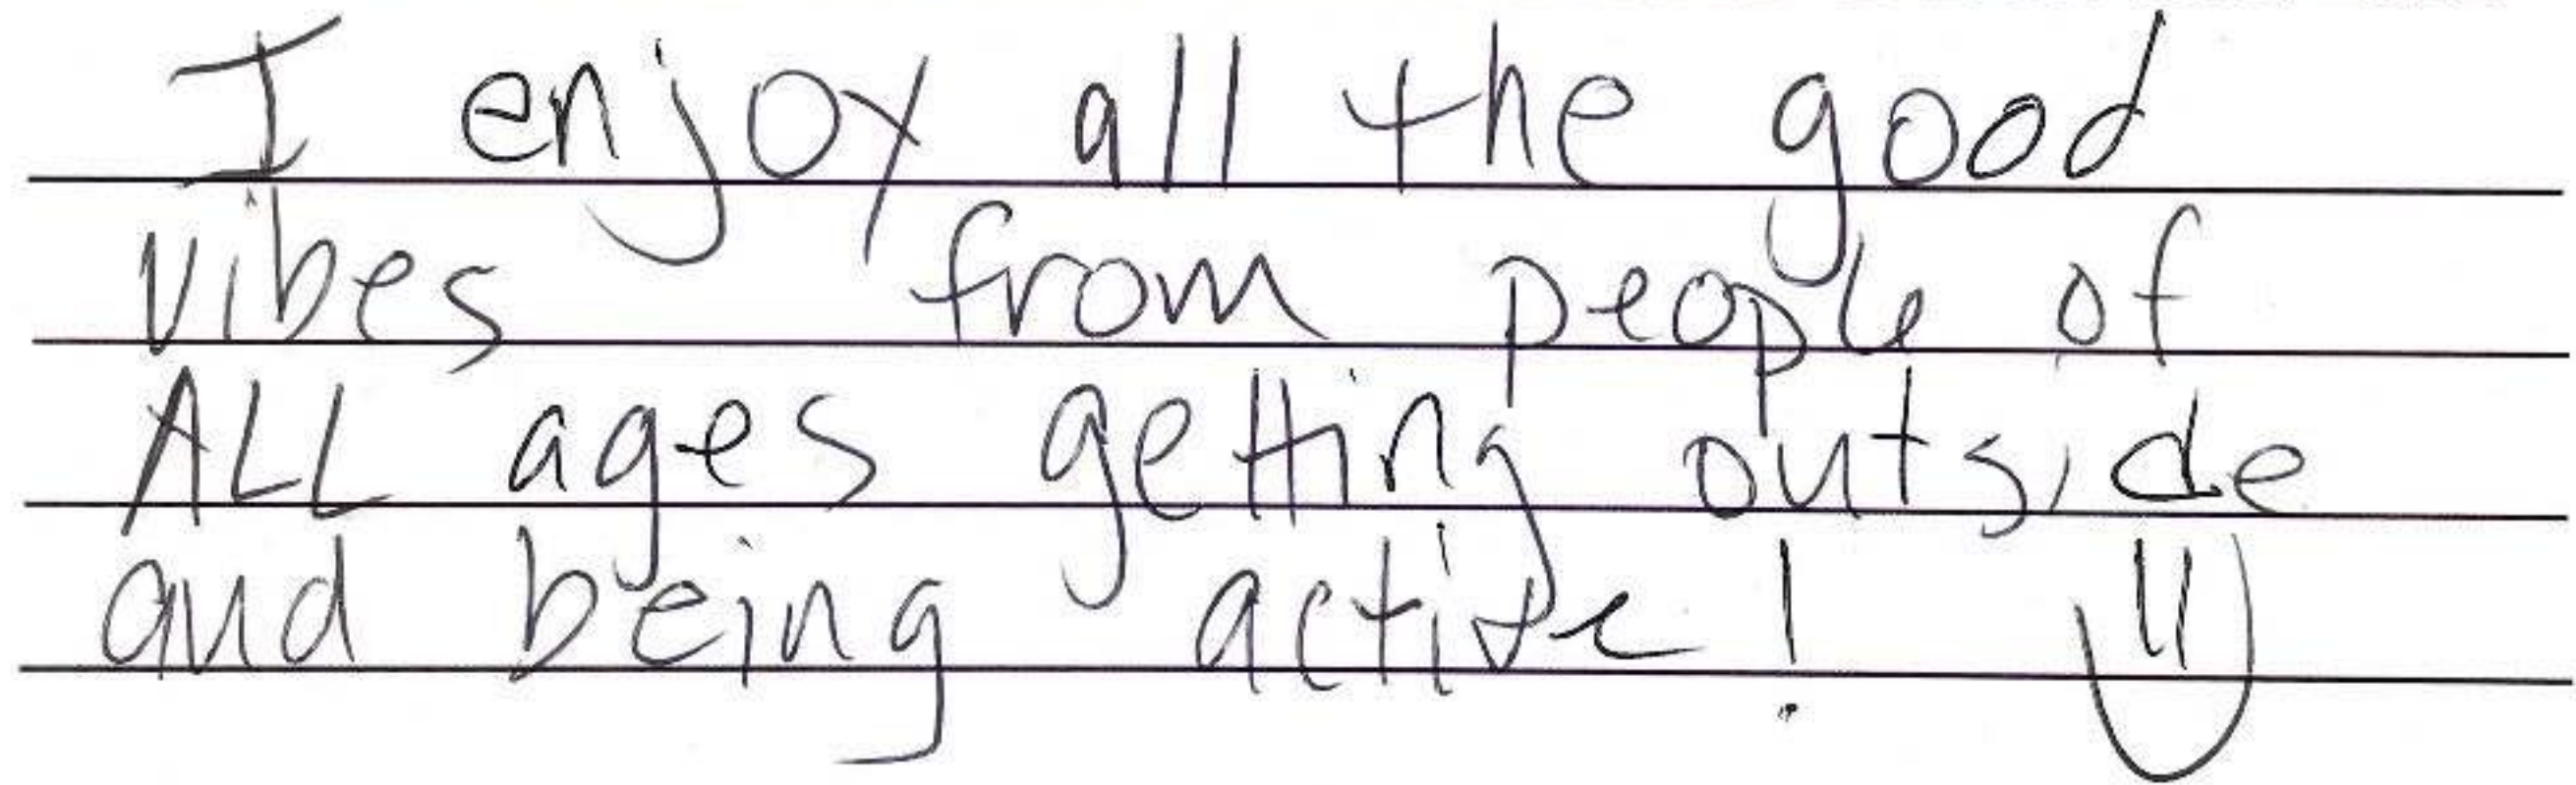 I enjoy all the good
vibes from people of
ALL ages getting outside
and being active!